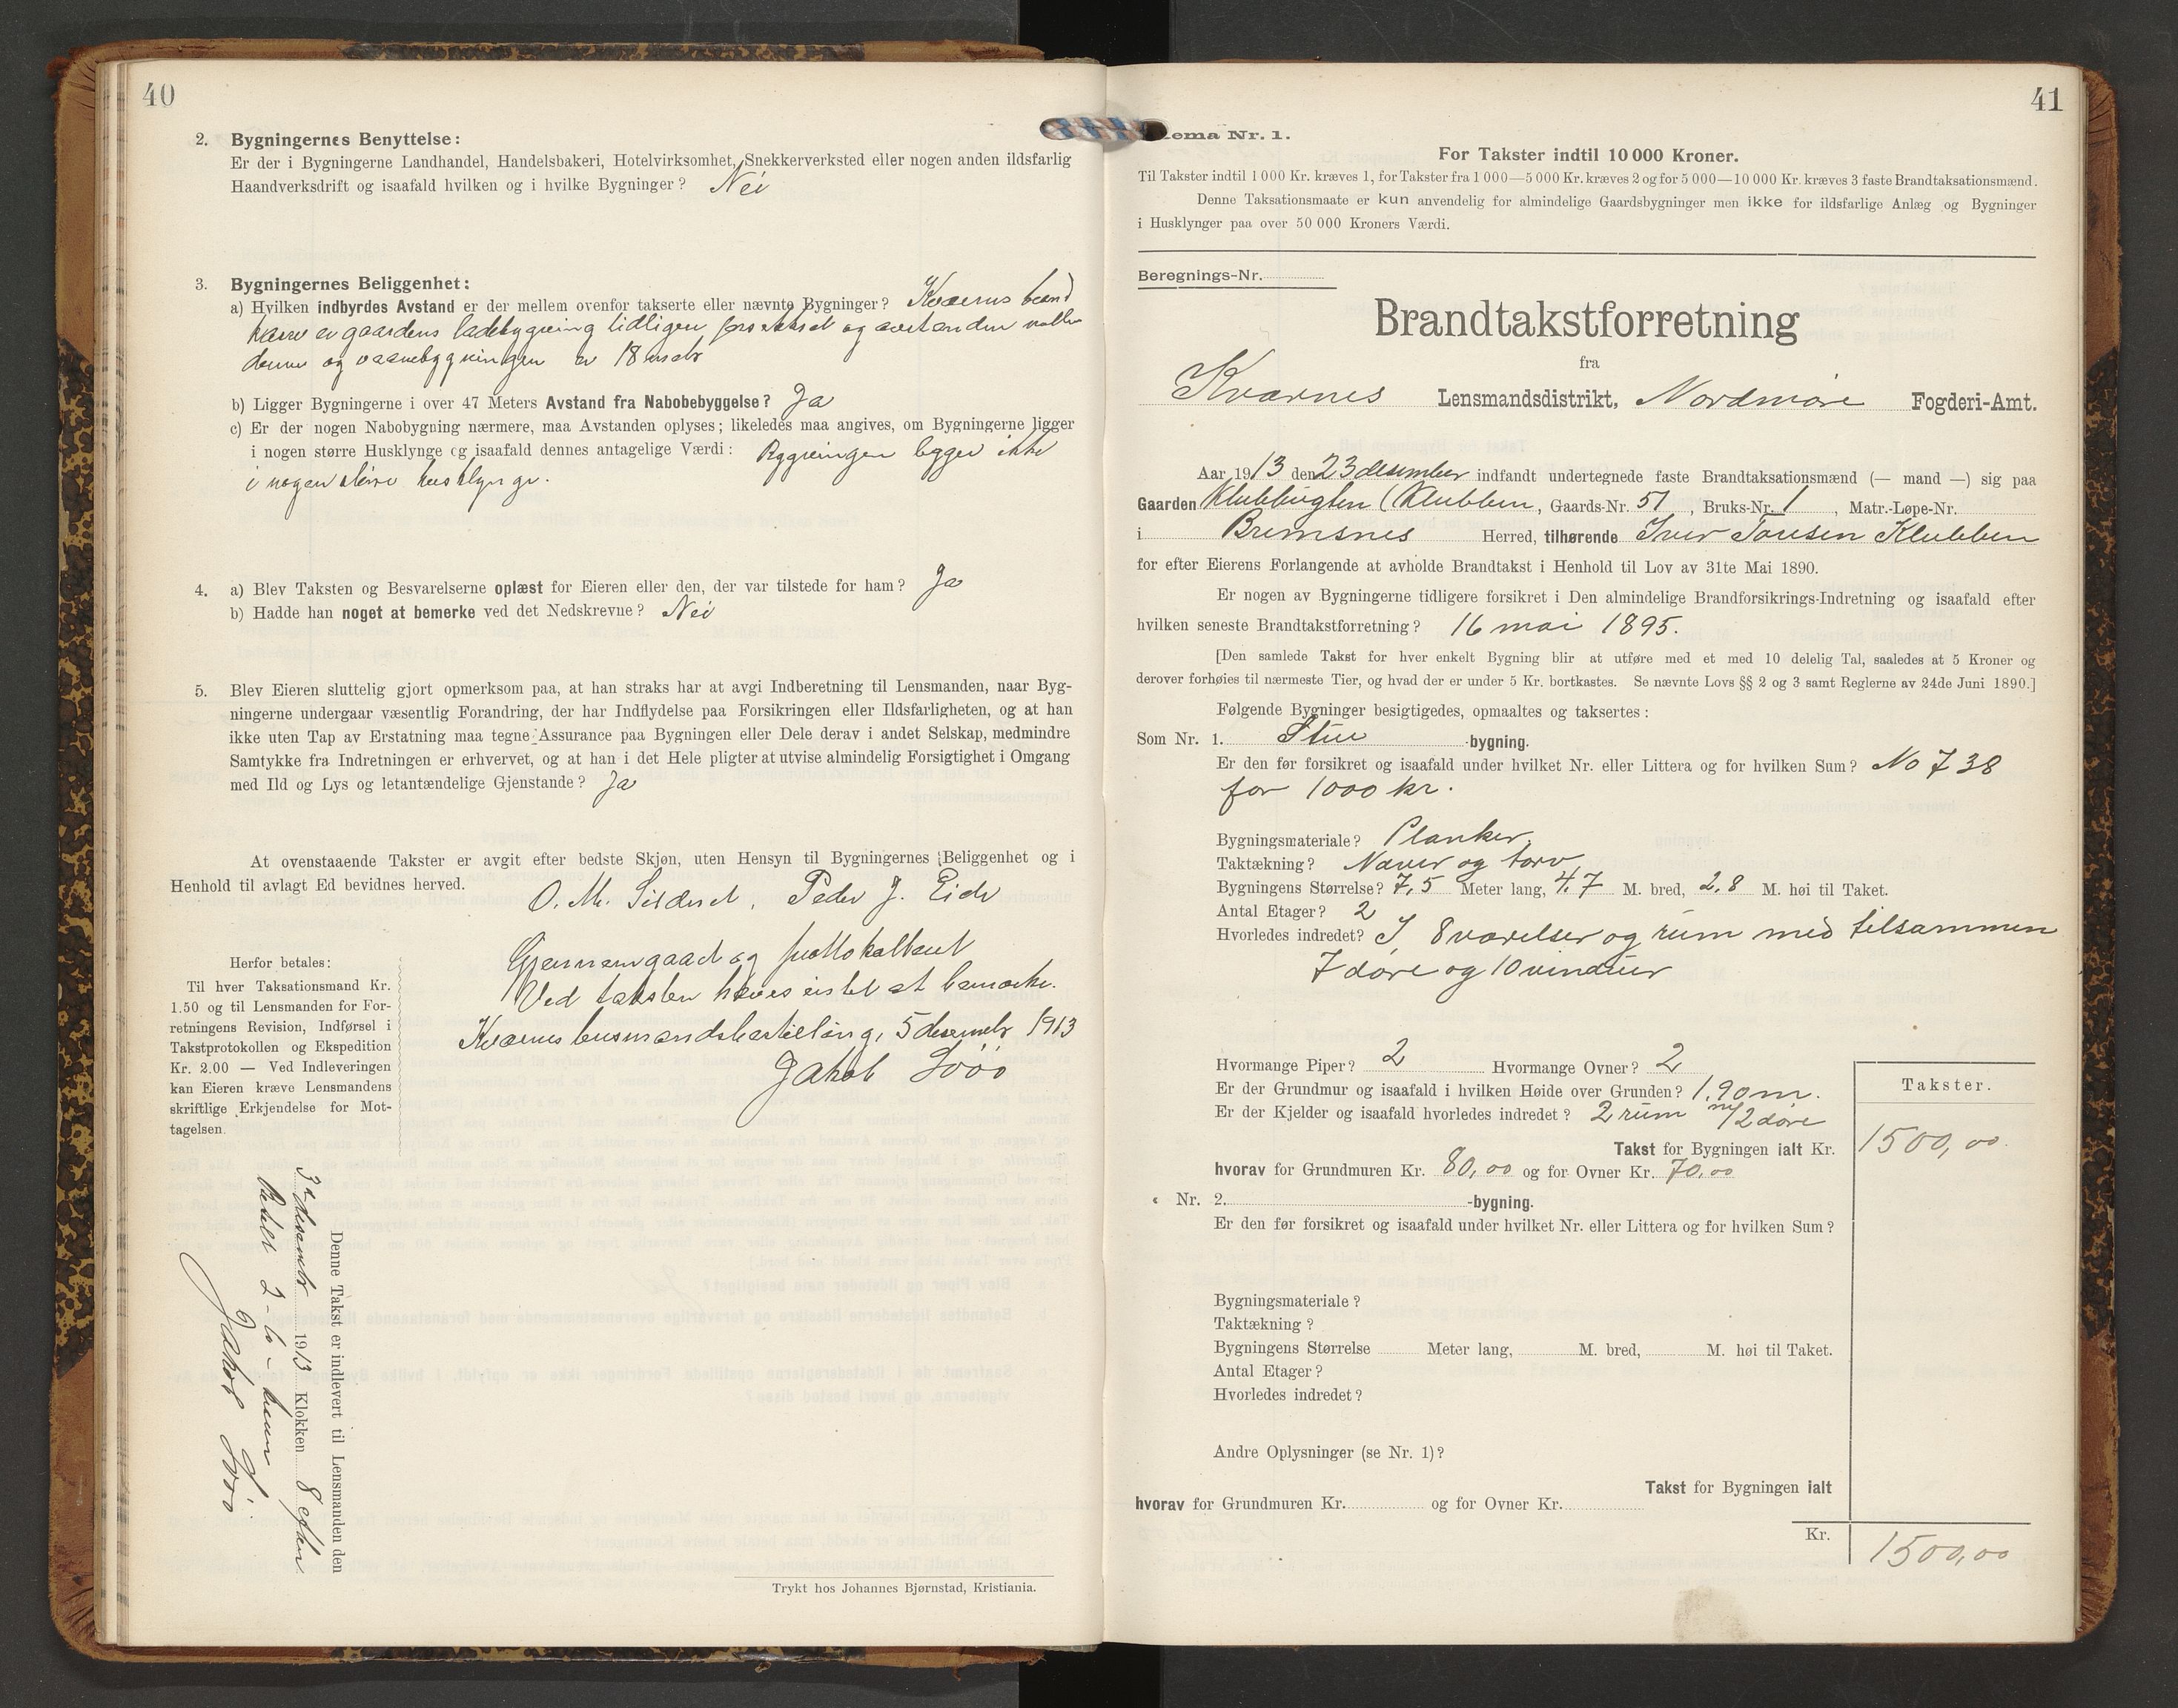 40
2. Bygningernes Benyttelse:
Er der i Bygningerne Landhandel, Handelsbakeri, Hotelvirksomhet, Snekkerverksted eller nogen anden ildsfarlig
Haandverksdrift og isaafald hvilken og i hvilke Bygninger? Nei
3. Bygningernes Beliggenhet:
a) Hvilken indbyrdes Avstand er der mellem ovenfor takserte eller nævnte Bygninger? Kværnes
gaardens ladebygning tidligere og avstanden
denne og vaanebygningen er 18 metr
b) Ligger Bygningerne i over 47 Meters Avstand fra Nabobebyggelse? Ja
c) Er der nogen Nabobygning nærmere, maa Avstanden oplyses; likeledes maa angives, om Bygningerne ligger
i nogen større Husklynge og isaafald dennes antagelige Værdi: Bygningen ligger ikke
i nogen större husklynge.
4. a) Blev Taksten og Besvarelserne oplæst for Eieren eller den, der var tilstede for ham? Ja
b) Hadde han noget at bemerke ved det Nedskrevne? Nei
5. Blev Eieren sluttelig gjort opmerksom paa, at han straks har at avgi Indberetning til Lensmanden, naar Byg-
ningerne undergaar væsentlig Forandring, der har Indflydelse paa Forsikringen eller Ildsfarligheten, og at han
ikke uten Tap av Erstatning maa tegne Assurance paa Bygningen eller Dele derav i andet Selskap, medmindre
Samtykke fra Indretningen er erhvervet, og at han i det Hele pligter at utvise almindelig Forsigtighet i Omgang
med Ild og Lys og letantændelige Gjenstande? Ja
At ovenstaaende Takster er avgit efter bedste Skjøn, uten Hensyn til Bygningernes Beliggenhet og i
Henhold til avlagt Ed bevidnes herved.
O. M. Sildset, Peder J. Eide
Gjennemgaaet og
Ved taksten haves intet at bemærke.
Kværnes lensmandsbestilling, 5 desembr 1913
Jakob Löö
Herfor betales:
Til hver Taksationsmand Kr.
1.50 og til Lensmanden for For-
retningens Revision, Indførsel i
Takstprotokollen og Ekspedition
Kr. 2.00 — Ved Indleveringen
kan Eieren kræve Lensmandens
skriftlige Erkjendelse for Mot-
tagelsen.
Denne Takst er indlevert til Lensmanden den
3de desembr 1913 Klokken 8 efterm
Betalt 2 - to - kroner
Jakob Löö
Trykt hos Johannes Bjørnstad, Kristiania.
41
ema Nr. 1.
For Takster indtil 10 000 Kroner.
Til Takster indtil 1 000 Kr. kræves 1, for Takster fra 1 000—5 000 Kr. kræves 2 og for 5 000—10 000 Kr. kræves 3 faste Brandtaksationsmænd.
Denne Taksationsmaate er kun anvendelig for almindelige Gaardsbygninger men ikke for ildsfarlige Anlæg og Bygninger
i Husklynger paa over 50 000 Kroners Værdi.
Beregnings-Nr.
Brandtakstforretning
fra
Kværnes Lensmandsdistrikt, Nordmöre Fogderi-Amt.
Aar 1913 den 23 desember indfandt undertegnede faste Brandtaksationsmænd (— mand —) sig paa
Gaarden Klubbugten (Klubben, Gaards-Nr. 51, Bruks-Nr. 1, Matr.-Løpe-Nr.
i Bremsnes Herred, tilhørende Iver Tousen Klubben
for efter Eierens Forlangende at avholde Brandtakst i Henhold til Lov av 31te Mai 1890.
Er nogen av Bygningerne tidligere forsikret i Den almindelige Brandforsikrings-Indretning og isaafald efter
hvilken seneste Brandtakstforretning? 16 mai 1895.
[Den samlede Takst for hver enkelt Bygning blir at utføre med et med 10 delelig Tal, saaledes at 5 Kroner og
derover forhøies til nærmeste Tier, og hvad der er under 5 Kr. bortkastes. Se nævnte Lovs §§ 2 og 3 samt Reglerne av 24de Juni 1890.]
Følgende Bygninger besigtigedes, opmaaltes og taksertes:
Som Nr. 1. Stue -bygning.
Er den før forsikret og isaafald under hvilket Nr. eller Littera og for hvilken Sum? No 738
for 1000 kr.
Bygningsmateriale? Planker.
Taktækning? Næver og torv
Bygningens Størrelse? 7,5 Meter lang, 4,7 M. bred, 2,8 M. høi til Taket.
Antal Etager? 2
Hvorledes indredet? I 8 værelser og rum med tilsammen
7 döre og 10 vinduer
Hvormange Piper? 2 Hvormange Ovner? 2
Er der Grundmur og isaafald i hvilken Høide over Grunden? 1,90 m.
Er der Kjelder og isaafald hvorledes indredet? 2 rum m/2 döre
Takster.
Takst for Bygningen ialt Kr. 1500,00
hvorav for Grundmuren Kr. 80,00 og for Ovner Kr. 70,00
Nr. 2. -bygning.
Er den før forsikret og isaafald under hvilket Nr. eller Littera og for hvilken Sum?
Bygningsmateriale?
Taktækning?
Bygningens Størrelse Meter lang, M. bred, M. høi til Taket.
Antal Etager?
Hvorledes indredet?
Andre Oplysninger (se Nr. 1)?
Takst for Bygningen ialt
hvorav for Grundmuren Kr. og for Ovner Kr.
Kr. 1500,00